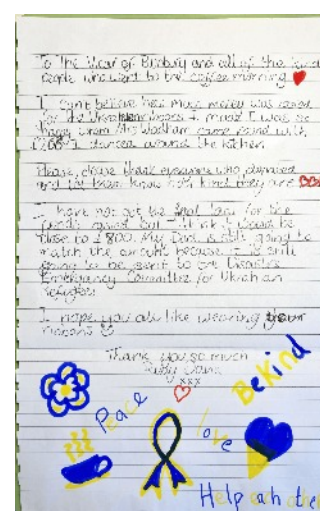 To the Vicar of and all of the kind
people who went to the coffee morning
I can't believe how much money was raised
for the Ukrainian I was so
happy when Mrs came round with
I danced around the kitchen
Please thank everyone who donated
and let them know how kind they are
I have not got the final for the
but I think it could be
close to £800. My Dad is still going to
match the amount because it is still
going to be sent to the Disasters
Emergency Committee for Ukrainian
refugees
I hope you all like wearing your
ribbons
Thank you so much
xxx
Peace
love
BeKind
Help each othe